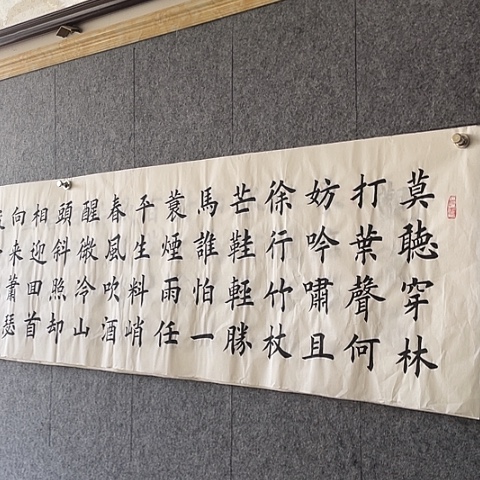 莫聽穿林
打葉聲何
妨吟嘯且
徐行竹杖
芒鞋輕勝
馬誰怕一
蓑煙雨任
平生料峭
春風吹酒
醒微冷山
頭斜照却
相迎回首
向来蕭瑟